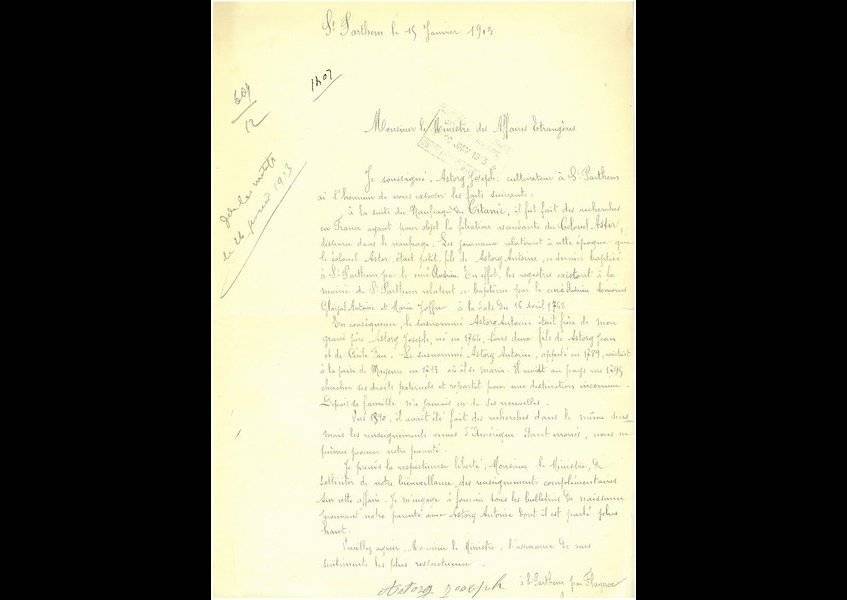 St Parthem le 15 Janvier 1913
1407
609
12
le 26 1913
Monsieur le Ministre des Affaires Etrangères
Je soussigné, Astorg Joseph, cultivateur à St Parthem
ai l'honneur de vous exposer les faits suivants.
à la suite du Naufrage du Titanic, il fut fait des recherches
en France ayant pour objet la filiation du Colonel Astor,
disparu dans le naufrage. Les journaux relatèrent à cette époque que
le colonel Astor était petit fils de Astorg Antoine, ce dernier baptisé
à St Parthem par le curé. En effet, les registres existant à la
mairie de St Parthem relatent ce baptême par le curé
Antoine et Marie à la date du 16 Avril 1762
En conséquence, le susnommé Astorg Antoine était frère de mon
grand père Astorg Joseph, né en 1766, tous deux fils de Astorg Jean
et de. Le susnommé Astorg Antoine, appelé en 1789,
à la de en où il se maria. Il au pays en
chercher ses droits paternels et repartit pour une destination inconnue.
Depuis sa famille n'a jamais eu de ses nouvelles.
Vers 1890, il avait été fait des recherches dans le même sens
mais les renseignements venus d'Amérique étant erronés, nous ne
pûmes prouver notre parenté.
Je prends la respectueuse liberté, Monsieur le Ministre, de
solliciter de votre bienveillance des renseignements complémentaires
sur cette affaire. Je m'engage à fournir tous les bulletins de naissance
prouvant notre parenté avec Astorg Antoine dont il est parlé plus
haut.
Veuillez agréer, Monsieur le Ministre, l'assurance de mes
sentiments les plus respectueux.
Astorg Joseph à St Parthem par Flagnac